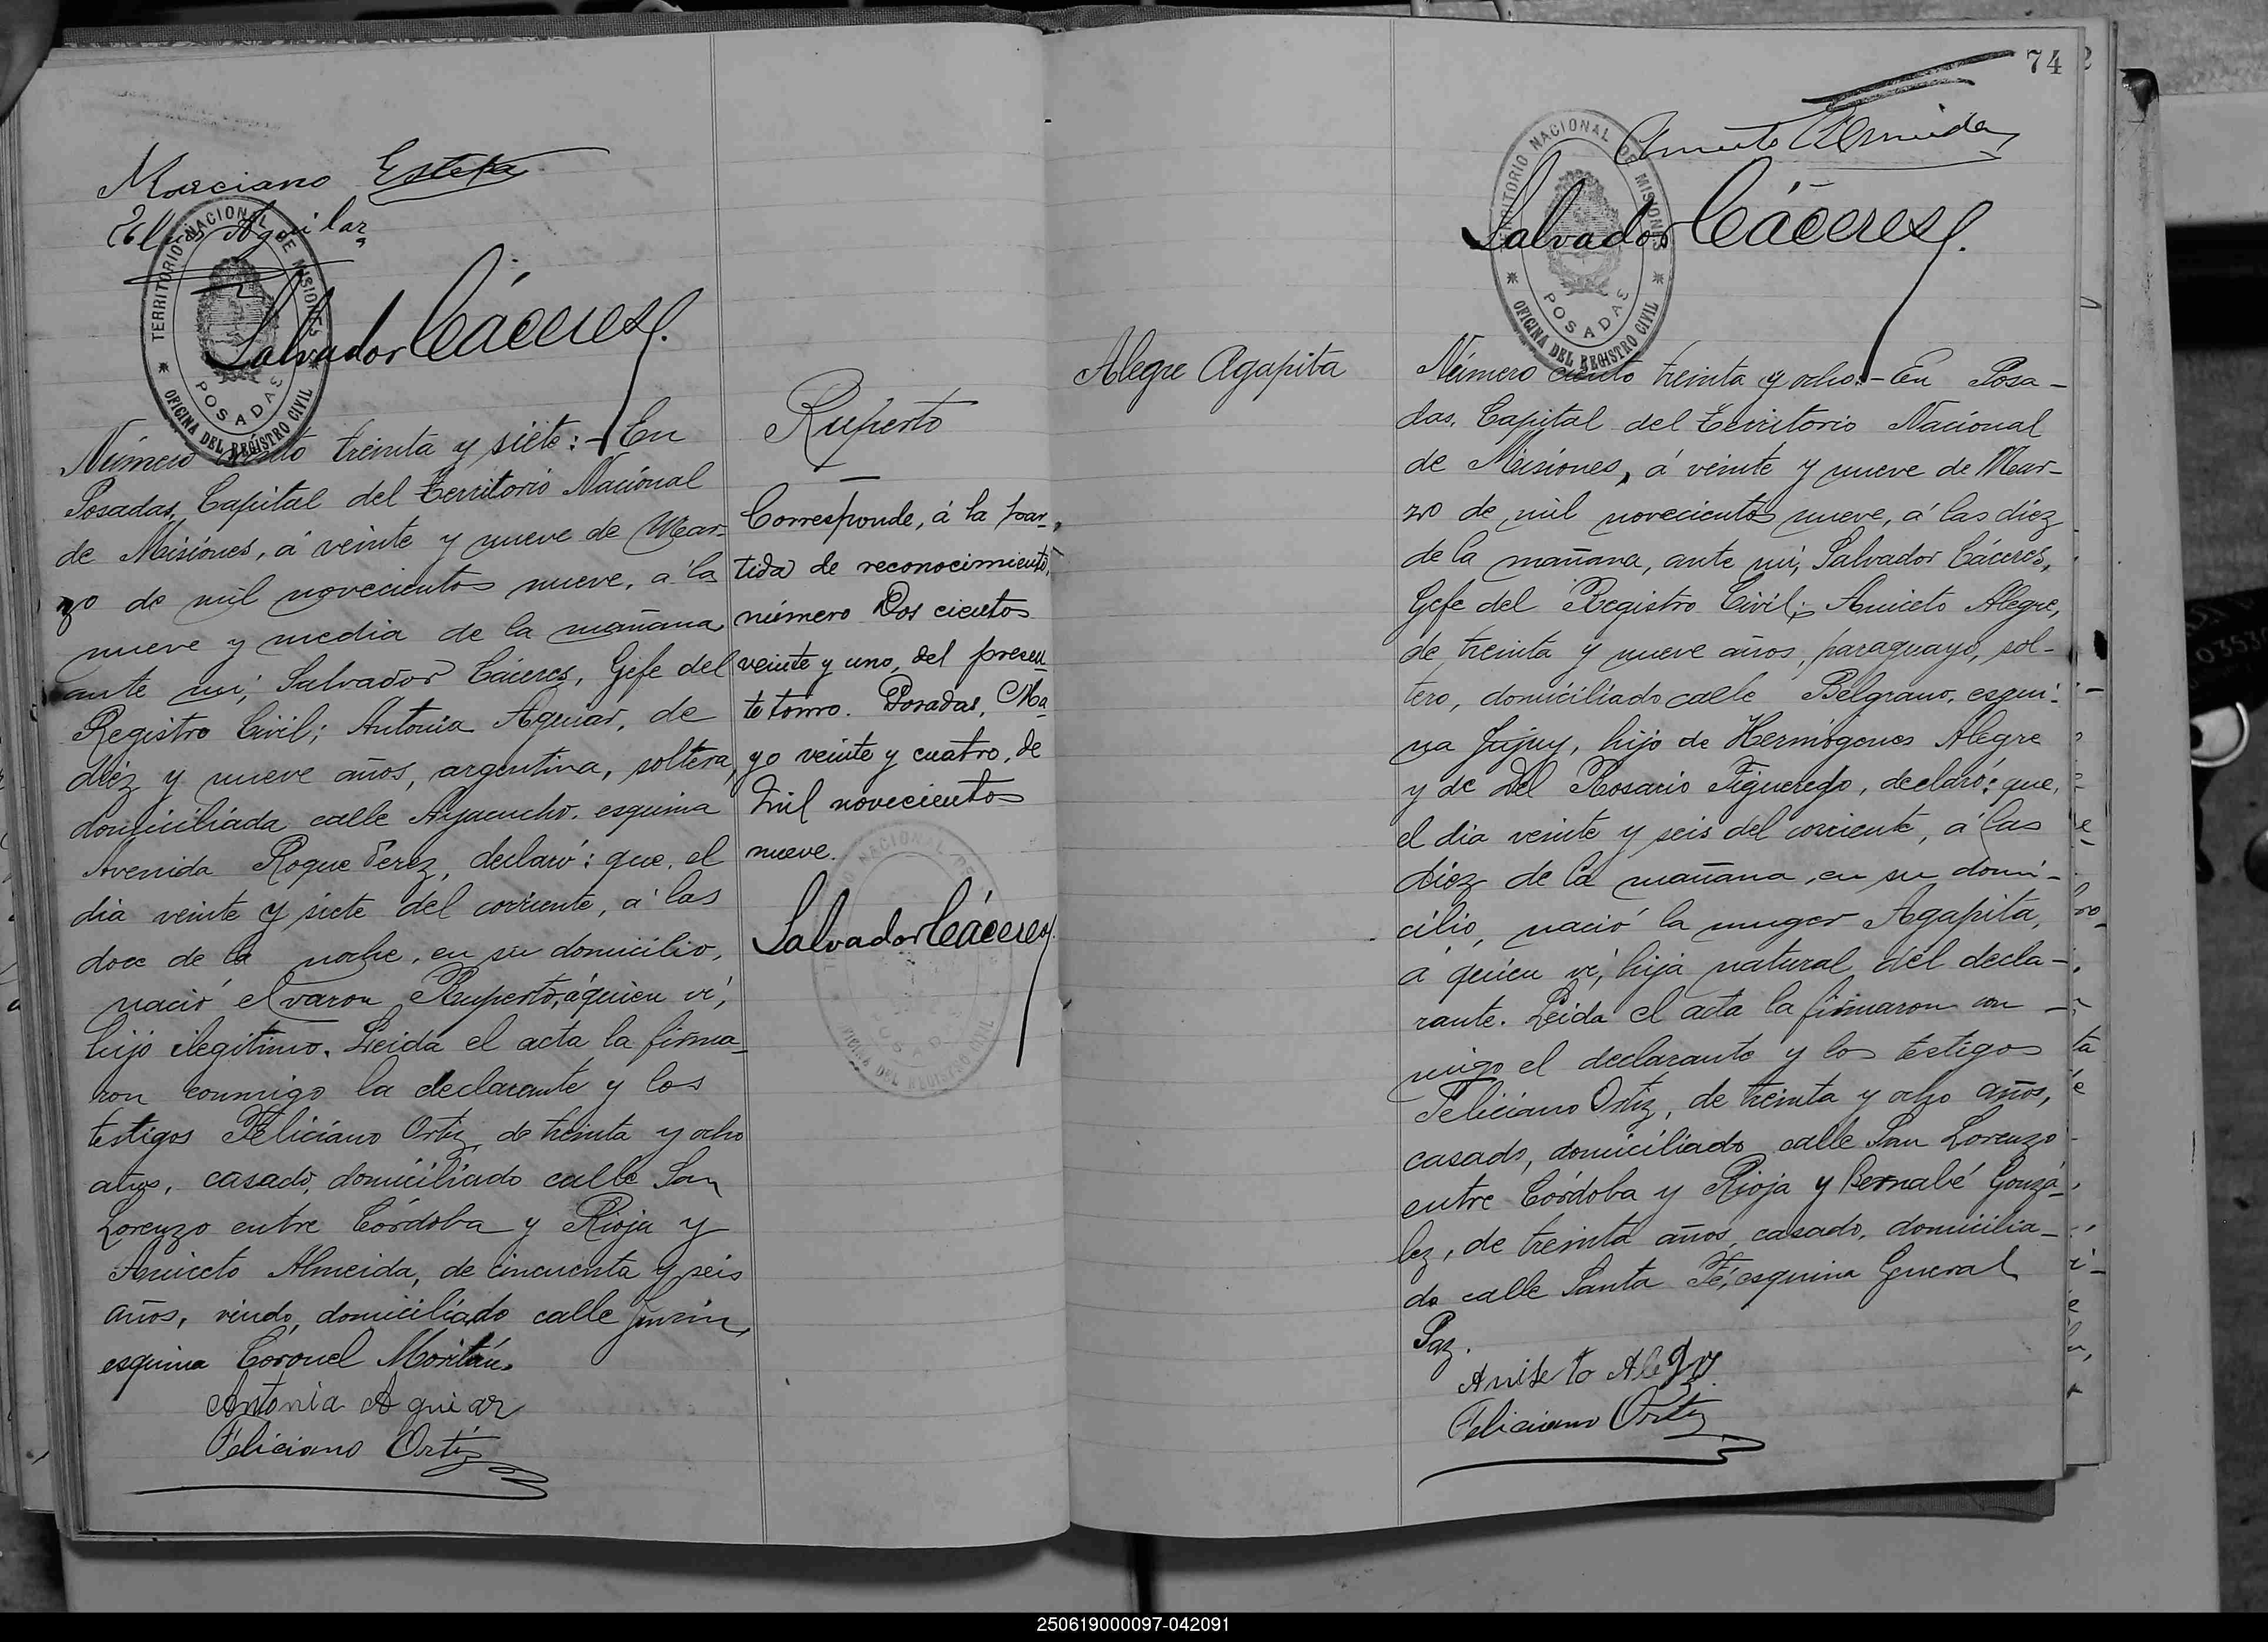 Marciano Esteka
Elías Aguilar
TERRITORIO NACIONAL DE MISIONES
POSADAS
OFICINA DEL REGISTRO CIVIL
Salvador Cáceres
Número ciento treinta y siete: - En
Posadas, Capital del Territorio Nacional
de Misiones, á veinte y nueve de Mar-
zo de mil novecientos nueve, a la
nueve y media de la mañana,
ante mi, Salvador Cáceres, Gefe del
Registro Civil; Antonia Aguiar, de
diez y nueve años, argentina, soltera,
domiciliada calle Ayacucho, esquina
Avenida Roque Perez, declaró: que, el
dia veinte y siete del corriente, á las
doce de la noche, en su domicilio,
nació el varon Ruperto, á quien ví,
hijo ilegitimo. Leida el acta la firma-
ron conmigo la declarante y los
testigos Feliciano Ortiz, de treinta y ocho
años, casado, domiciliado calle San
Lorenzo entre Córdoba y Rioja y
Aniceto Almeida, de cincuenta y seis
años, viudo, domiciliado calle Junin,
esquina Coronel Moritán.
Antonia Aguiar
Feliciano Ortiz
Ruperto
Corresponde, á la par-
tida de reconocimiento,
número Dos cientos
veinte y uno, del presen-
te tomo. Posadas, Ma-
yo veinte y cuatro, de
mil novecientos
nueve.
Salvador Cáceres
74
Aniceto Almeida
TERRITORIO NACIONAL DE MISIONES
POSADAS
OFICINA DEL REGISTRO CIVIL
Salvador Cáceres
Alegre Agapita
Número ciento treinta y ocho: - En Posa-
das, Capital del Territorio Nacional
de Misiones, á veinte y nueve de Mar-
zo de mil novecientos nueve, á las diez
de la mañana, ante mi, Salvador Cáceres,
Gefe del Registro Civil; Aniceto Alegre,
de treinta y nueve años, paraguayo, sol-
tero, domiciliado calle Belgrano, esqui-
na Jujuy, hijo de Hermógenes Alegre
y de Del Rosario Figueredo, declaró: que,
el dia veinte y seis del corriente, á las
diez de la mañana, en su domi-
cilio, nació la muger Agapita,
á quien ví, hija natural del decla-
rante. Leida el acta la firmaron con-
migo el declarante y los testigos
Feliciano Ortiz, de treinta y ocho años,
casado, domiciliado calle San Lorenzo
entre Córdoba y Rioja y Bernabé Gonzá-
lez, de treinta años, casado, domicilia-
do calle Santa Fé, esquina General
Paz.
Aniseto Alegre
Feliciano Ortiz
250619000097-042091